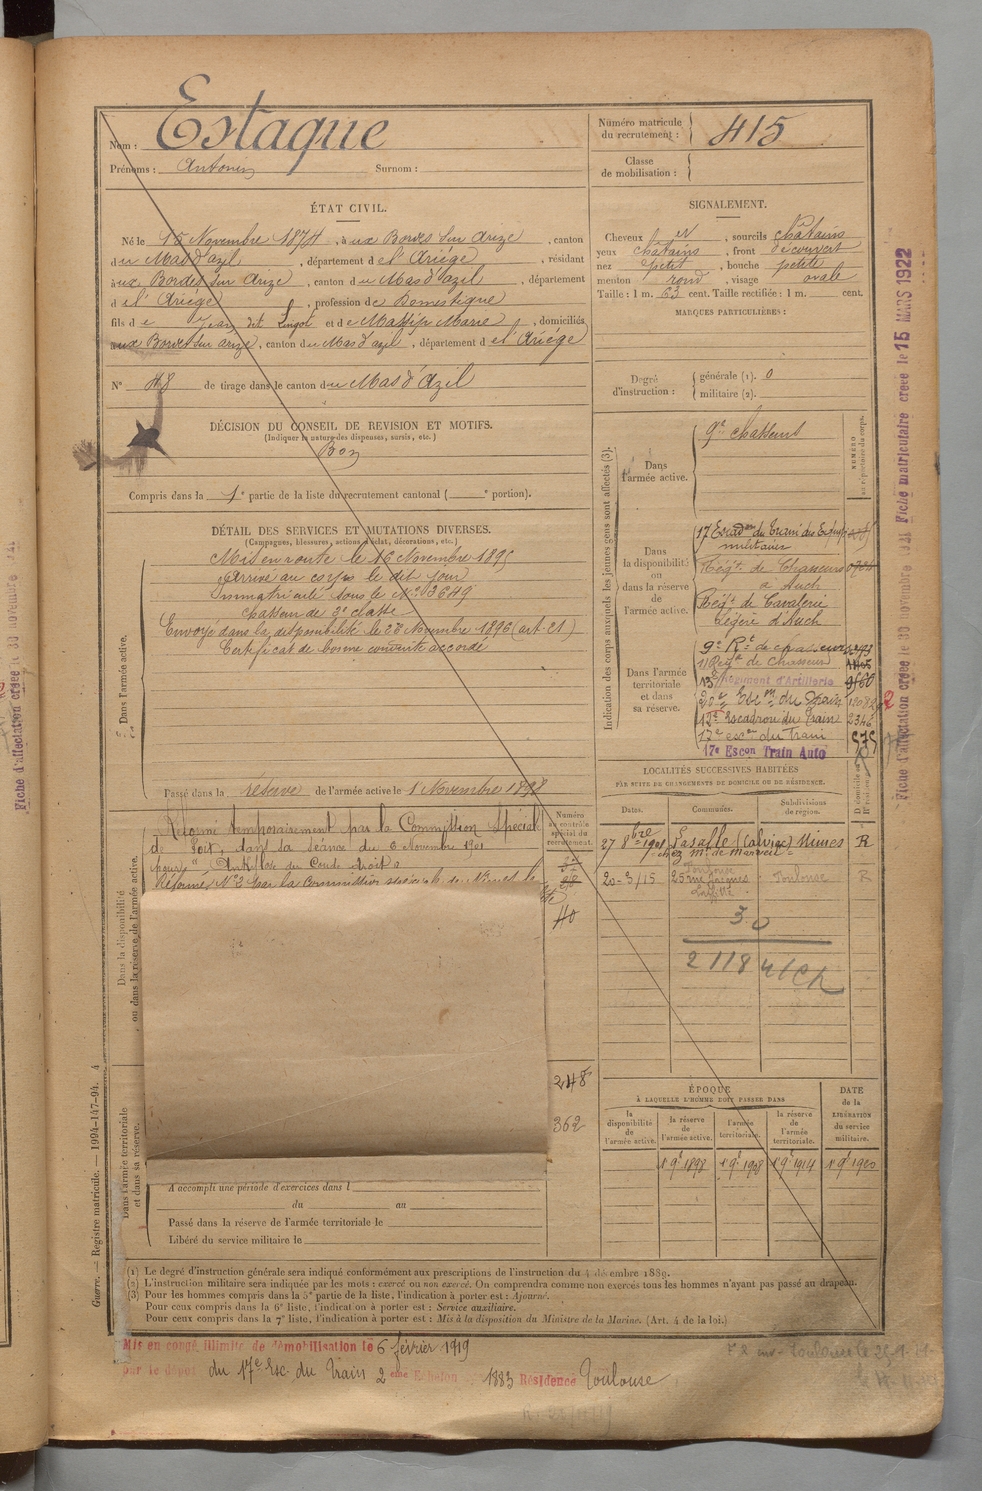 Nom : Estaque
Prénoms : Antonin Surnom :
Numéro matricule du recrutement : 415
Classe de mobilisation :
ÉTAT CIVIL.
Né le 15 Novembre 1874, à ux Bordes Sur Arize, canton
du Mas d'azil, département de l'Ariège, résidant
à ux Bordes sur Arize, canton du Mas d'azil, département
d e l'Ariège, profession de Domestique
fils d e Jean dit Lingot et de Massip Marie, domiciliés
à ux Bordes sur arize, canton du Mas d'azil, département d e l'Ariège
N° 48 de tirage dans le canton du Mas d'Azil
SIGNALEMENT.
Cheveux , sourcils châtains
yeux châtains, front découvert
nez petit, bouche petite
menton rond, visage ovale
Taille : 1 m. 63 cent. Taille rectifiée : 1 m. cent.
MARQUES PARTICULIÈRES :
Degré d'instruction : générale (1). 0
militaire (2).
DÉCISION DU CONSEIL DE REVISION ET MOTIFS.
(Indiquer la nature des dispenses, sursis, etc.)
Bon
Compris dans la 1e partie de la liste du recrutement cantonal ( e portion).
DÉTAIL DES SERVICES ET MUTATIONS DIVERSES.
(Campagnes, blessures, actions d'éclat, décorations, etc.)
Dans l'armée active.
Mis en route le 16 Novembre 1895
Arrivé au corps le dit jour
Immatriculé sous le N° 3649
chasseur de 2e classe
Envoyé dans la disponibilité le 23 Novembre 1896 (art. 21)
Certificat de bonne conduite accordé
Passé dans la réserve de l'armée active le 1 Novembre 1898
Numéro au contrôle spécial du recrutement.
Dans la disponibilité ou dans la réserve de l'armée active.
Réformé temporairement par la Commission Spéciale
de Foix, dans sa séance du 6 Novembre 1901
pour Ankylose du Coude droit
Réformé N° 2 par la commission spéciale de Nimes le
40
248
362
Dans l'armée territoriale et dans sa réserve.
A accompli une période d'exercices dans l
du au
Passé dans la réserve de l'armée territoriale le
Libéré du service militaire le
Indication des corps auxquels les jeunes gens sont affectés (3).
NUMÉRO au répertoire du corps.
Dans l'armée active.
9e chasseurs
Dans la disponibilité ou dans la réserve de l'armée active.
17 Escadon du Train des Equip
militaires
Régt. de Chasseurs
à Auch
Régt. de Cavalerie
Légère d'Auch
Dans l'armée territoriale et dans sa réserve.
9e Rt de chasseurs
Regt de Chasseurs
Régiment d'Artillerie
20e Eon du Train
Escadron du Train 2346
17e escon du train 575
17e Escon Train Auto
LOCALITÉS SUCCESSIVES HABITÉES
PAR SUITE DE CHANGEMENTS DE DOMICILE OU DE RÉSIDENCE.
Dates. Communes. Subdivisions de région.
27 8bre 1901 Lasalle (Calviac) Nimes R
chez Mr de
20-3/15 25 rue Jacques Laffitte Toulouse R
Toulouse
30
2118
ÉPOQUE
À LAQUELLE L'HOMME DOIT PASSER DANS
la disponibilité de l'armée active.
la réserve de l'armée active.
l'armée territoriale.
la réserve de l'armée territoriale.
DATE de la LIBÉRATION du service militaire.
1 9e 1898 1 9e 1908 1 9e 1914 1 9e 1920
(1) Le degré d'instruction générale sera indiqué conformément aux prescriptions de l'instruction du 4 décembre 1889.
(2) L'instruction militaire sera indiquée par les mots : exercé ou non exercé. On comprendra comme non exercés tous les hommes n'ayant pas passé au drapeau.
(3) Pour les hommes compris dans la 5e partie de la liste, l'indication à porter est : Ajourné.
Pour ceux compris dans la 6e liste, l'indication à porter est : Service auxiliaire.
Pour ceux compris dans la 7e liste, l'indication à porter est : Mis à la disposition du Ministre de la Marine. (Art. 4 de la loi.)
Mis en congé illimité de démobilisation le 6 février 1919
par le dépôt du 17e Esc. du Train 2ème Echelon 1883 Résidence Toulouse
Guerre. — Registre matricule. — 1994-147-94. 4
Fiche matriculaire créée le 15 MARS 1922
Fiche d'affectation créée le 30 novembre 1921
Fiche d'affectation créée le 30 novembre